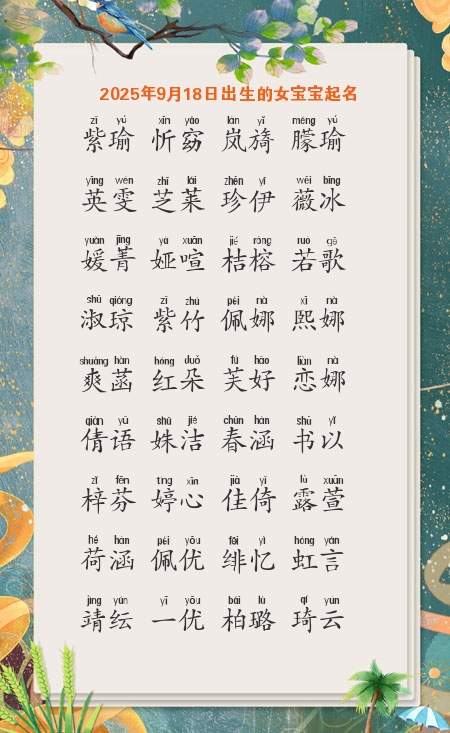 2025年9月18日出生的女宝宝起名
zǐ yú xīn yǎo lán yǐ méng yú
紫瑜 忻窈 岚旖 朦瑜
yīng wén zhī lái zhēn yī wēi bīng
英雯 芝莱 珍伊 薇冰
yuàn jīng yà xuān jié róng ruò gē
媛菁 娅喧 桔榕 若歌
shū qióng zǐ zhú pèi nà xī nà
淑琼 紫竹 佩娜 熙娜
shuǎng hàn hóng duǒ fú hǎo liàn nà
爽菡 红朵 芙好 恋娜
qiàn yǔ shū jié chūn hán shū yǐ
倩语 姝洁 春涵 书以
zǐ fēn tíng xīn jiā yǐ lù xuān
梓芬 婷心 佳倚 露萱
hé hán pèi yōu fēi yì hóng yán
荷涵 佩优 绯忆 虹言
jìng yún yī yōu bǎi lù qí yún
靖纭 一优 柏璐 琦云